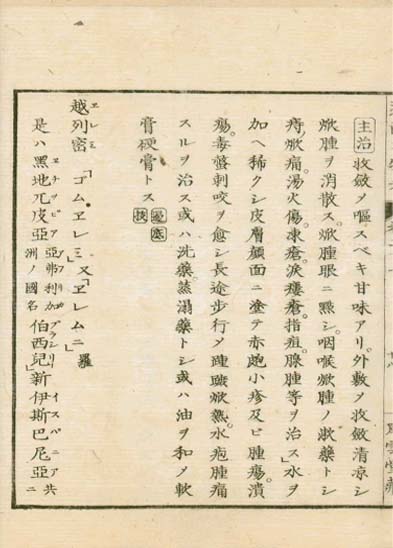 主治 收斂〆嘔スベキ甘味アリ。外敷〆收斂清凉シ
焮腫ヲ消散ス。焮腫眼ニ點シ。咽喉焮腫ノ漱藥トシ
痔焮痛。湯火傷。凍瘡。淚瘻瘡。指疽。腺腫等ヲ治ス」水ヲ
加ヘ稀クシ皮層顔面ニ塗テ赤皰小疹及ビ腫瘍。潰
瘍。毒螫刺咬ヲ愈シ長途步行〆踵蹠焮熱。水疱腫痛
スルヲ治ス或ハ洗藥蒸溻藥トシ或ハ油ヲ和〆軟
膏硬膏トス
越列密 エレミ 「ゴムヱレミ」又「ヱレムニ」羅
是ハ黑地兀皮亞 ヱチヲピア 亞弗利加洲ノ國名 伯西兒 ブラシリー 」新伊斯巴尼亞 イスパニア 共ニ